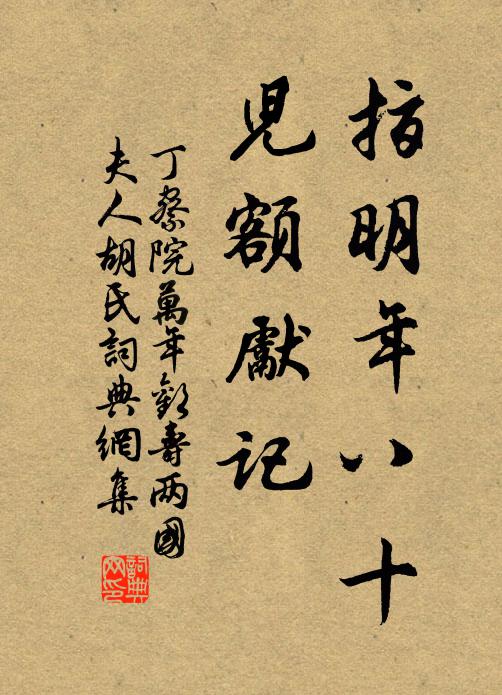 指明年八十
兒額獻記
丁察院萬年歡壽兩國
夫人胡氏詞典網集
詞典网印